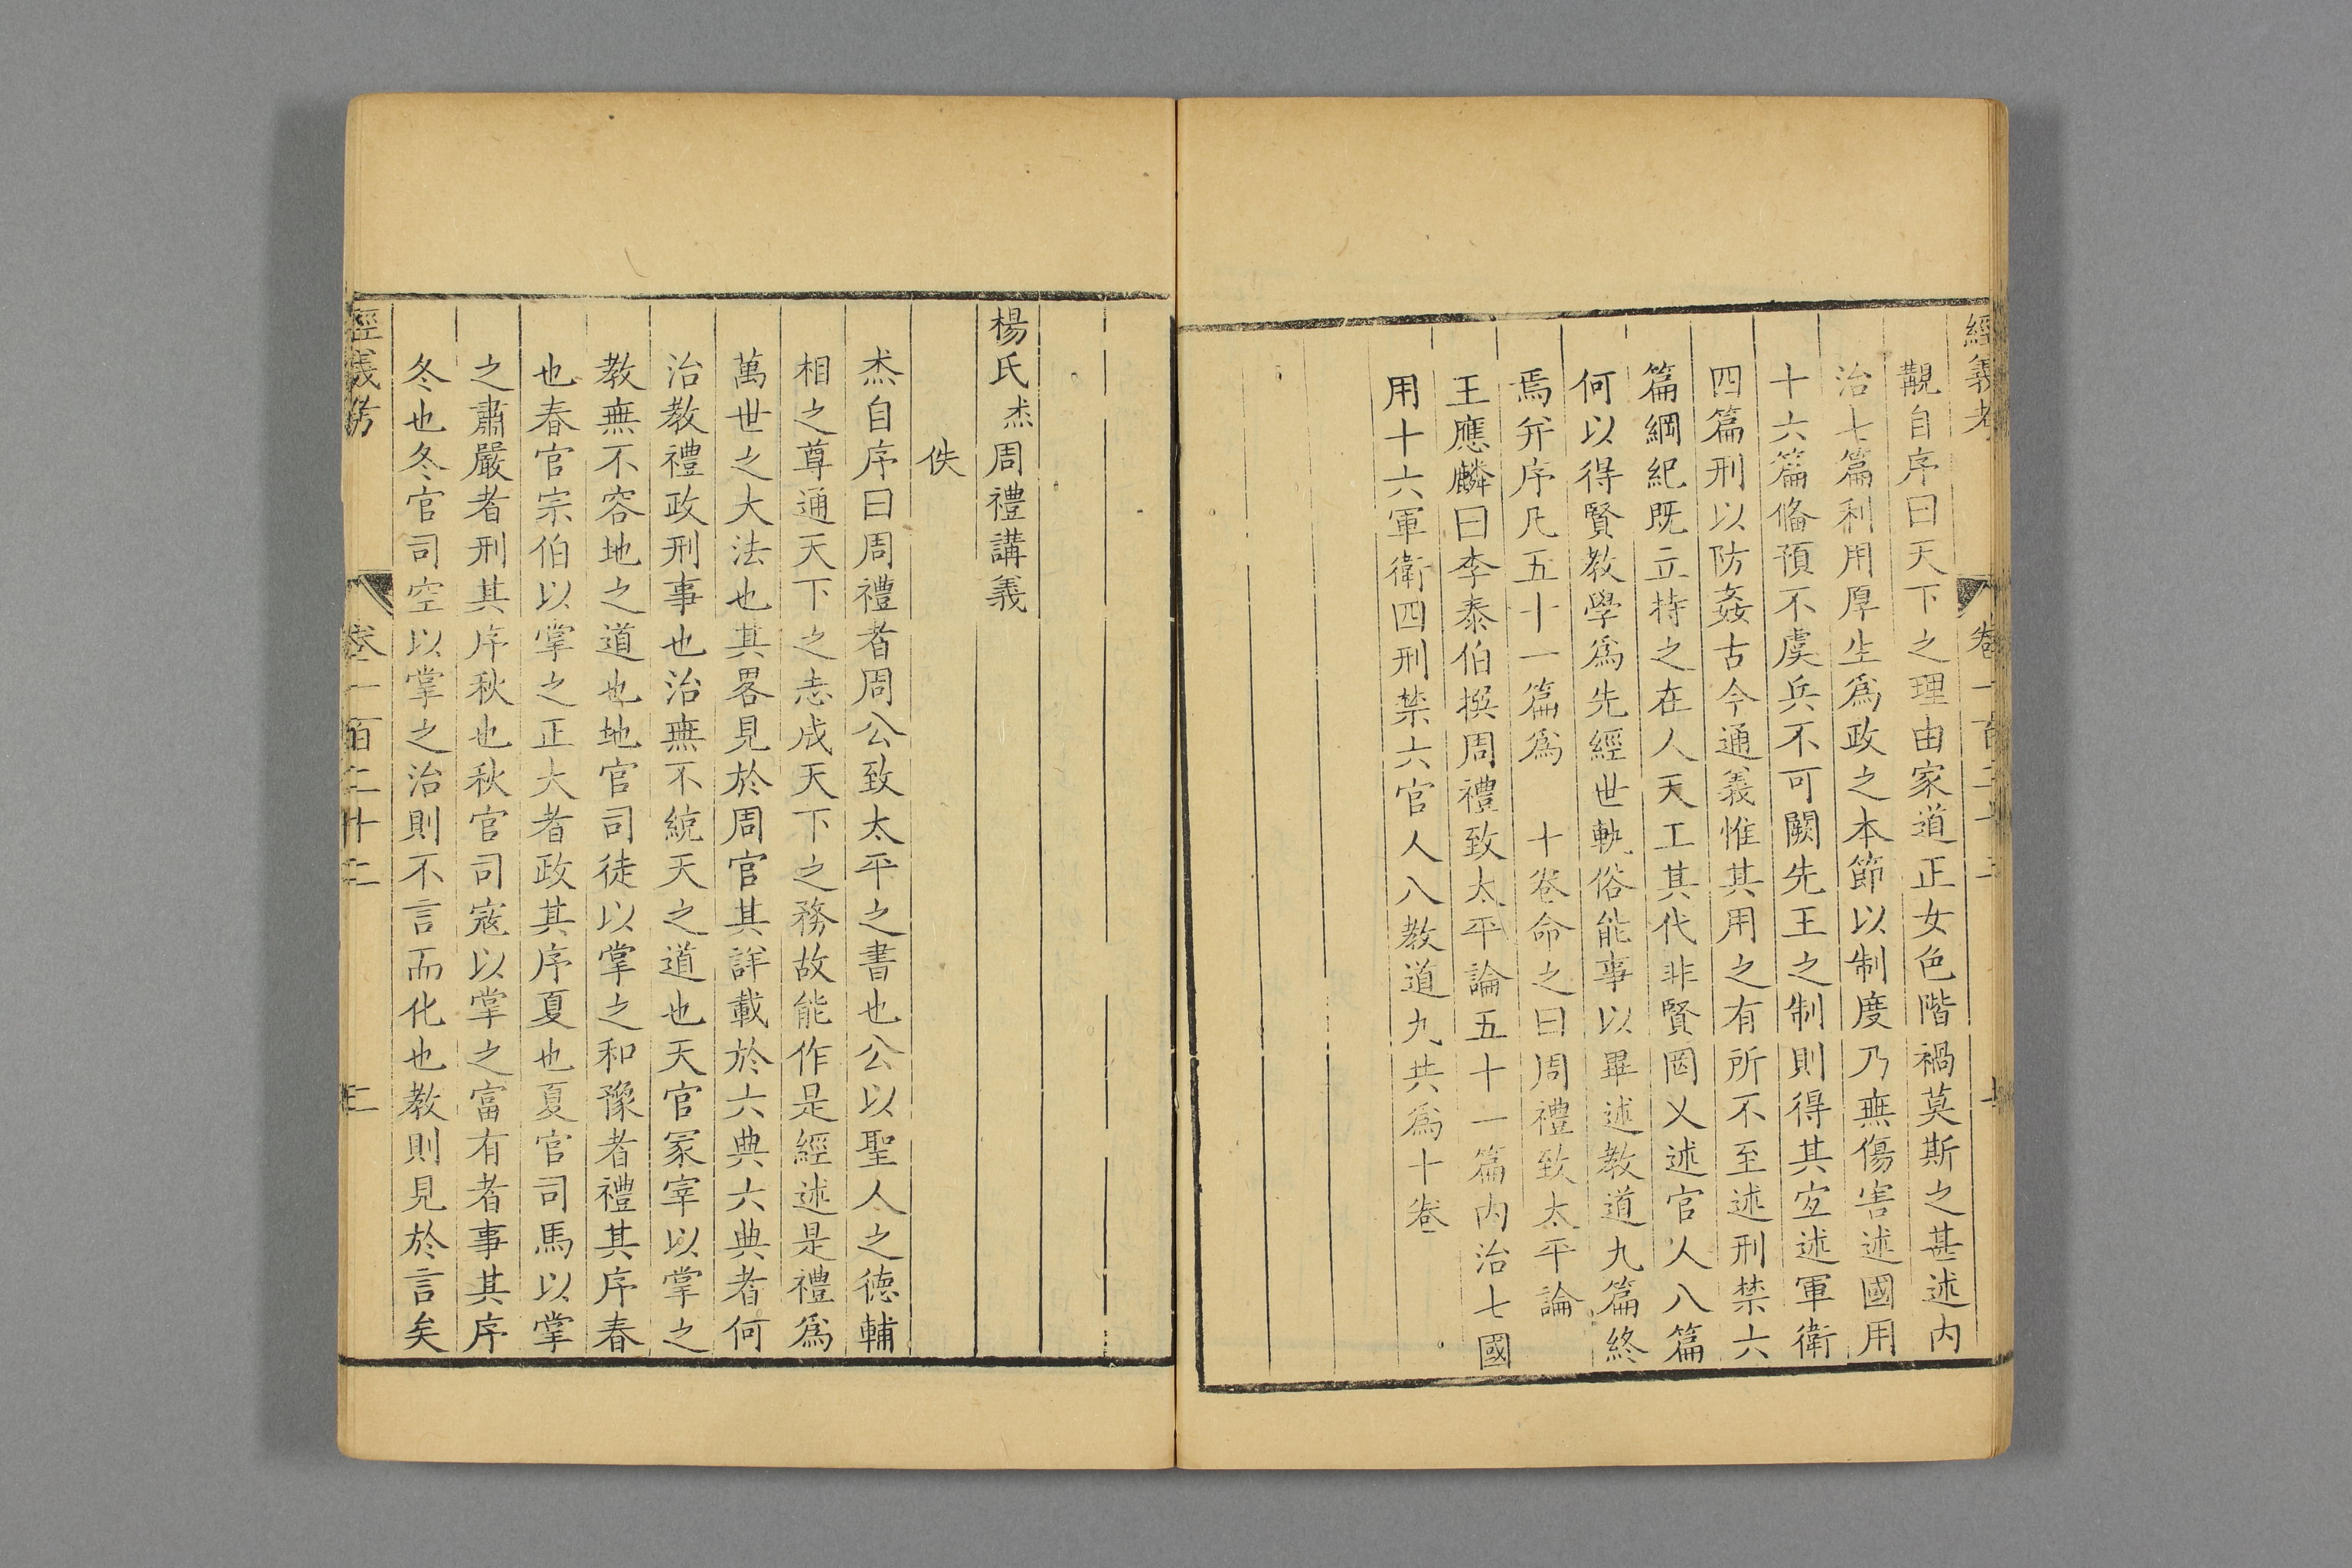 經義考 卷一百二十二
覯自序曰天下之理由家道正女色階禍莫斯之甚述内
治七篇利用厚生爲政之本節以制度乃無傷害述國用
十六篇俻預不虞兵不可闕先王之制則得其宐述軍衛
四篇刑以防姦古今通義惟其用之有所不至述刑禁六
篇綱紀既立持之在人天工其代非賢罔乂述官人八篇
何以得賢教學爲先經世軌俗能事以畢述教道九篇終
焉并序凡五十一篇爲 十卷命之曰周禮致太平論
王應麟曰李泰伯撰周禮致太平論五十一篇内治七國
用十六軍衛四刑禁六官人八教道九共爲十卷
楊氏杰周禮講義
佚
杰自序曰周禮者周公致太平之書也公以聖人之徳輔
相之尊通天下之志成天下之務故能作是經述是禮爲
萬世之大法也其畧見於周官其詳載於六典六典者何
治教禮政刑事也治無不統天之道也天官冢宰以掌之
教無不容地之道也地官司徒以掌之和豫者禮其序春
也春官宗伯以掌之正大者政其序夏也夏官司馬以掌
之肅嚴者刑其序秋也秋官司寇以掌之富有者事其序
冬也冬官司空以掌之治則不言而化也教則見於言矣
經義考 卷一百二十二 二